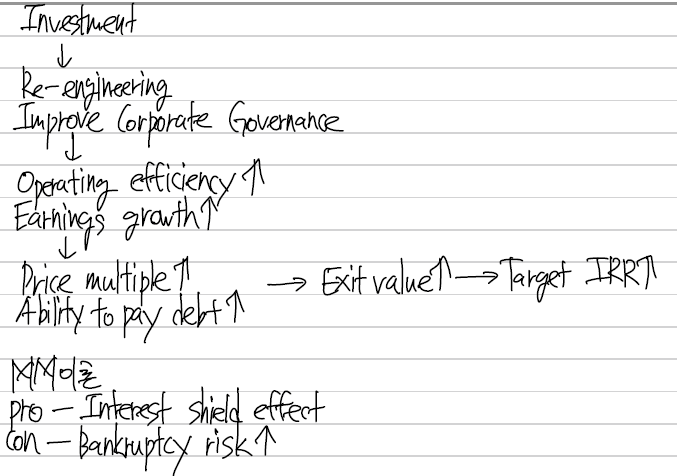 Investment
↓
Re-engineering
Improve Corporate Governance
↓
Operating efficiency↑
Earnings growth↑
↓
Price multiple↑ → Exit value↑ → Target IRR↑
Ability to pay debt↑
MM이론
pro - Interest shield effect
con - Bankruptcy risk↑